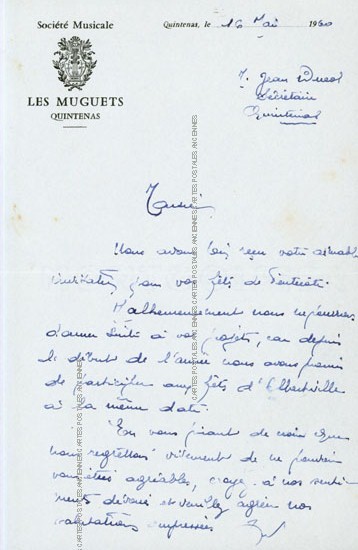 Société Musicale
LES MUGUETS
QUINTENAS
Quintenas, le 16 Mai 1960
Jean
Secrétaire
Quintenas
Monsieur
Nous avons bien reçu votre aimable
invitation pour vos fêts de
Malheureusement nous ne pouvons
donner suite à vos projets, car depuis
le début de l'année nous avons promis
de participer aux fêts d'Albertville
à la même date.
En vous priant de croire que
nous regrettons vivement de ne pouvoir
vous être agréables, croyez à nos senti-
ments dévoués et veuillez agréer nos
salutations empressées
CARTES POSTALES ANCIENNES CARTES POSTALES ANCIENNES CARTES POSTALES ANCIENNES